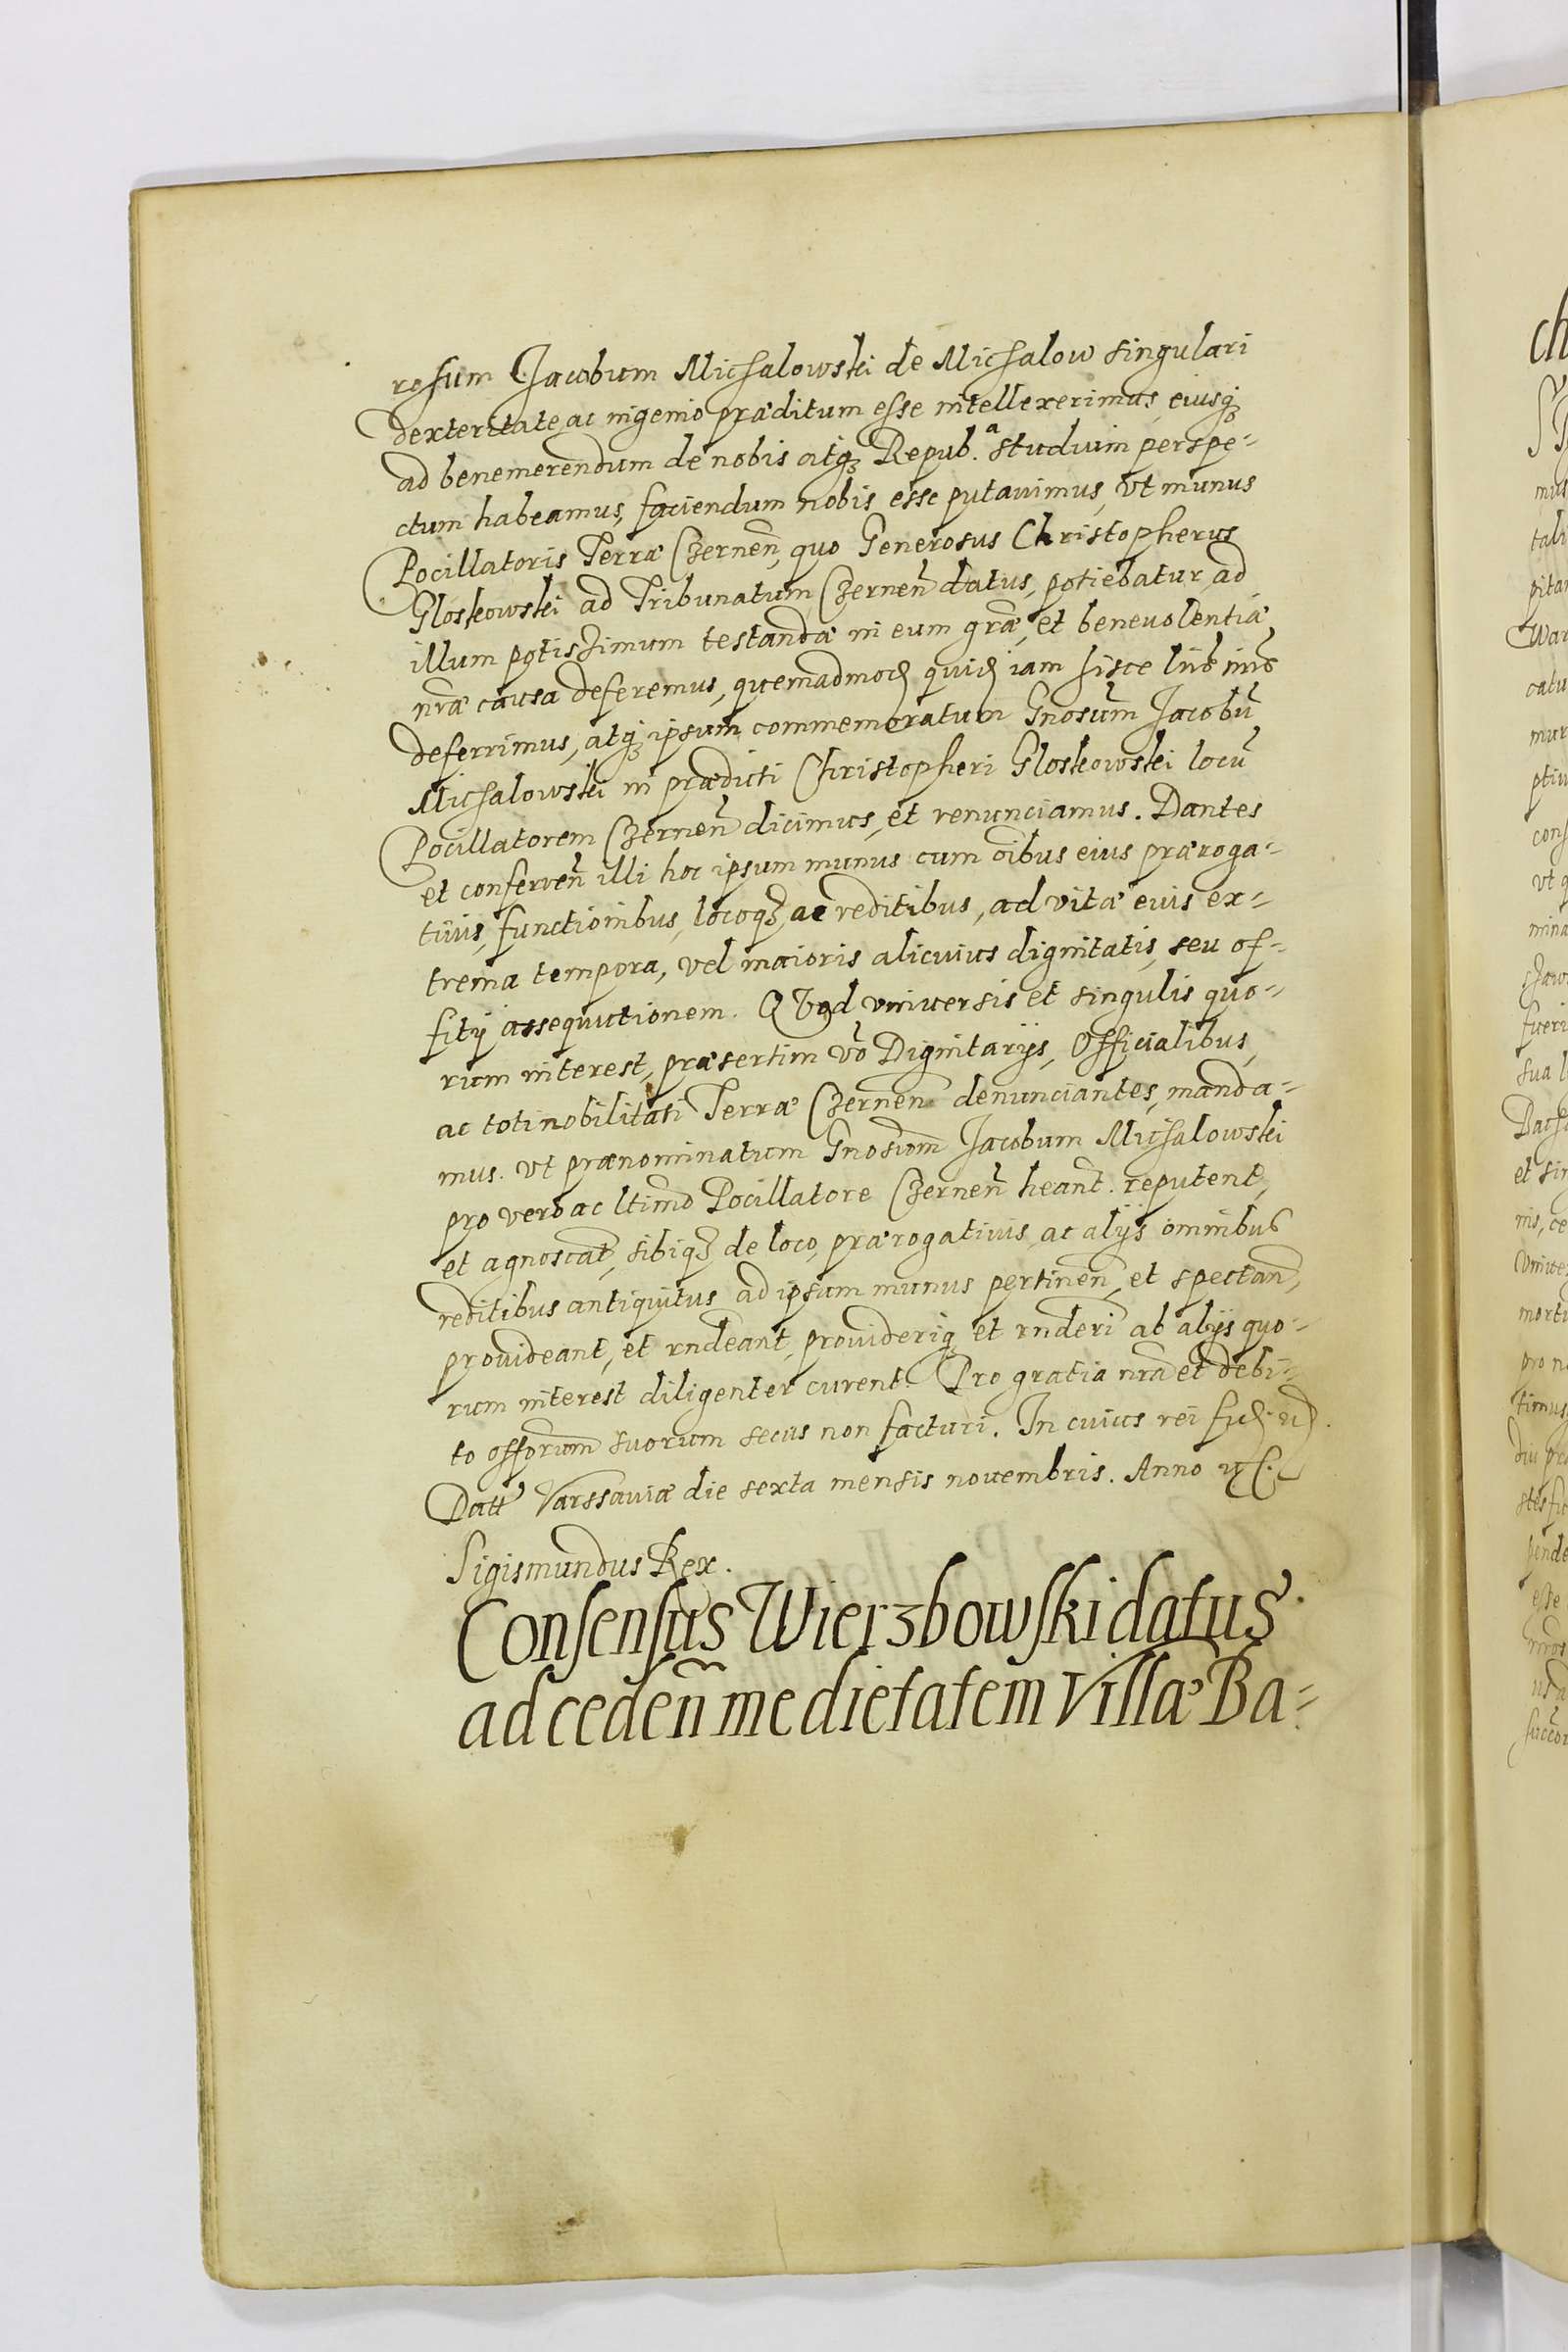 rosum Jacobum Michalowski de Michalow singulari
dexteritate ac ingenio præditum esse intellexerimus, eiusq₃
ad benemerendum de nobis atq₃ Repub.ᵃ studium perspe-
ctum habeamus, faciendum nobis esse putauimus, vt munus
Pocillatoris Terræ Czerneñ, quo Generosus Christopherus
Gloskowski ad Tribunatum Czerneñ datus, potiebatur, ad
illum potissimum testandæ in eum grãe, et beneuolentiæ
nrãe causa deferemus, quemadmod quid iam hisce lrĩs nrĩs
deferrimus, atq₃ ipsum commemoratum Gnosum̃ Jacobũ
Michalowski in prædicti Christopheri Gloskowski locũ
Pocillatorem Czerneñ dicimus, et renunciamus. Dantes
et conferen̄ illi hoc ipsum munus cum õibus eius præroga-
tiuis, functionibus, locoq₃, ac reditibus, ad vitæ eius ex-
trema tempora, vel maioris alicuius dignitatis, seu of-
ficij assequutionem. QVod vniuersis et singulis quo-
rum interest, præsertim võ Dignitarijs, Officialibus,
ac toti nobilitati Terræ Czerneñ denunciantes, manda-
mus. vt prænominatum Gnosum̃ Jacobum Michalowski
pro vero ac ltimo Pocillatore Czerneñ heant̃. reputent,
et agnoscat̃, sibiq₃ de loco, prærogatiuis, ac alijs omnibus
reditibus antiquitus ad ipsum munus pertineñ, et spectañ,
prouideant, et rñdeant, prouideriq₃ et rñderi ab alijs quo-
rum interest diligenter curent. Pro gratia nrã et debi-
to offorum̃ suorum secus non facturi. In cuius rei fid
Datt Varssauiæ die sexta mensis nouembris. Anno
Sigismundus Rex.
Consensus Wierzbowski datus
ad cedeñ medietatem Villæ Ba-